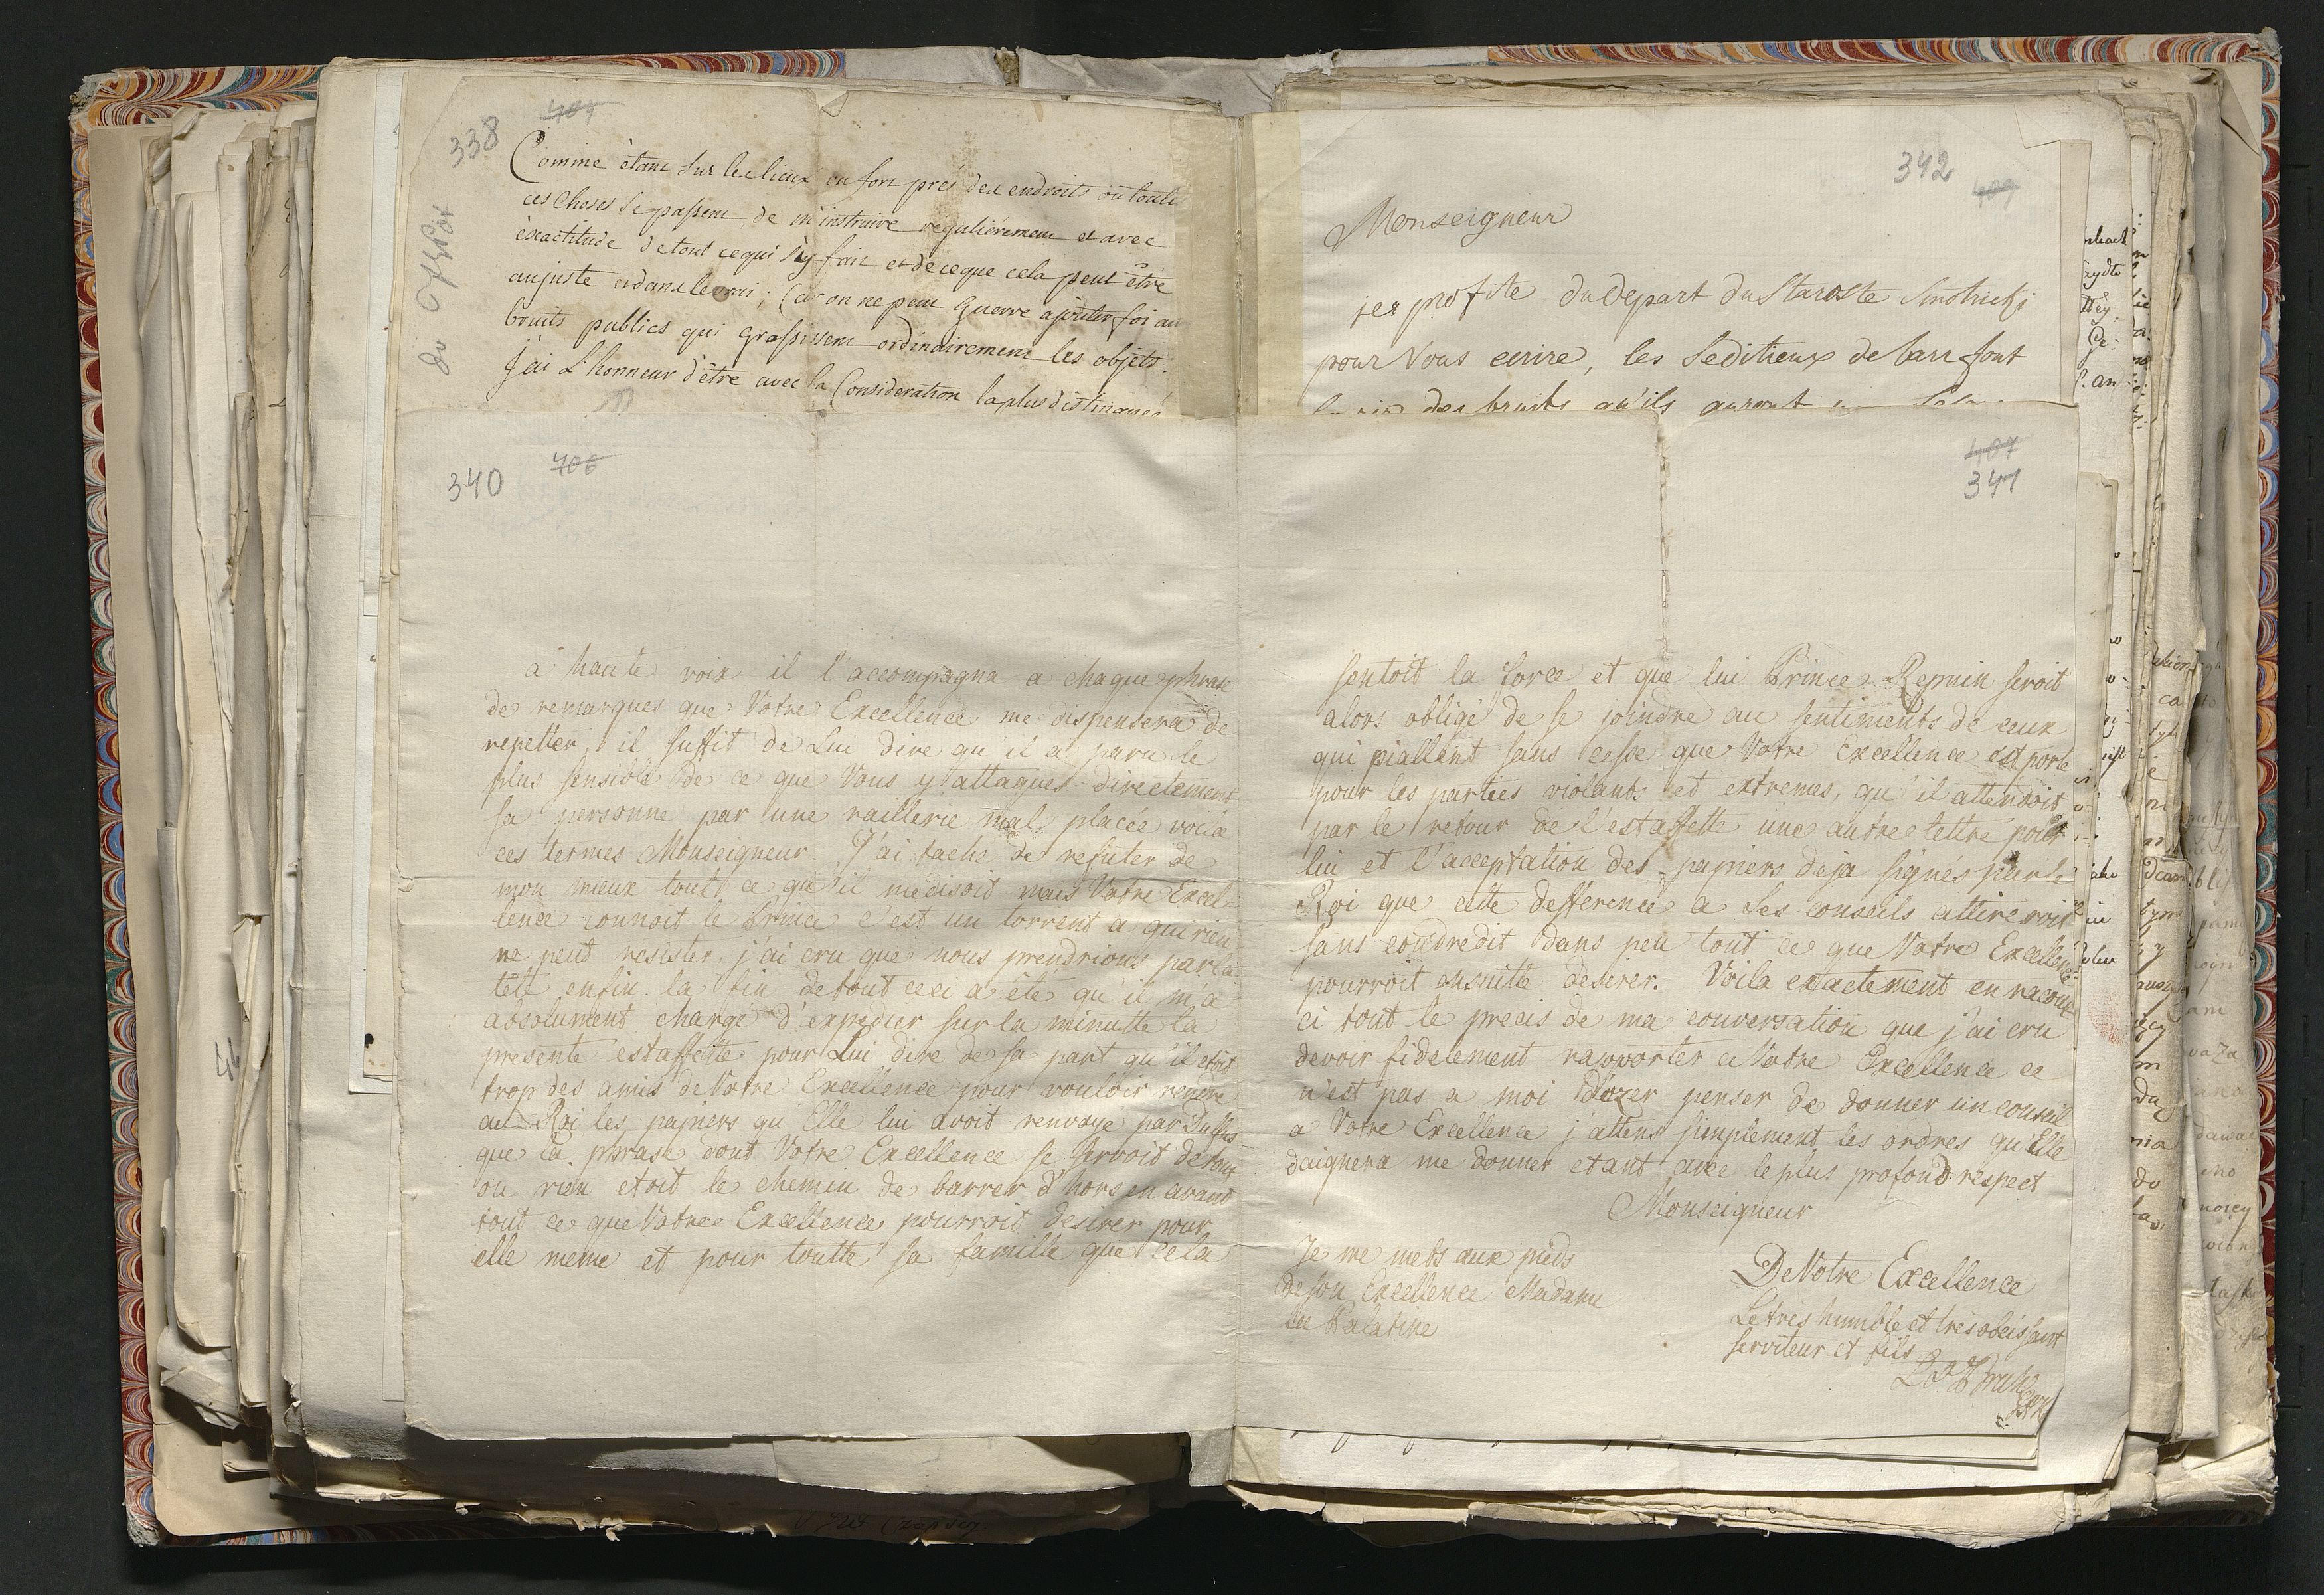 338
407
Comme étant sur les lieux ou fort près des endroits où toutes
ces choses se passent, de m'instruire régulièrement et avec
éxactitude de tout ce qui s'y fait et de ce que cela peut être
au juste et dans le vrai; Car on ne peut Guerre ajouter foi au
bruits publics qui grossissent ordinairement les objets.
J'ai L'honneur d'être avec la Consideration la plus distinguée
342
409
Monseigneur
je profite du Depart du Staroste
pour Vous ecrire, les Seditieux de bar font
des bruits qu'ils auront
340
406
a haute voix il l'accompagna a chaque phrase
de remarques que Votre Excellence me dispensera de
repetter, il suffit de Lui dire qu'il a paru le
plus sensible de ce que Vous y attaqués directement
sa personne par une raillerie mal placée voila
ces termes Monseigneur. J'ai tache de refuter de
mon mieux tout ce qu'il me disoit mais Votre Excel-
lence connoit le Prince c'est un torrent a qui rien
ne peut resister, j'ai cru que nous prendrions par la
tete enfin la fin de tout ceci a été qu'il m'a
absolument chargé d'expedier sur la minutte la
presente estaffette pour Lui dire de sa part qu'il etoit
trop des amis de Votre Excellence pour vouloir rendre
au Roi les papiers qu'Elle lui avoit renvoyé par
que la phrase dont Votre Excellence se servoit de tout
ou rien etoit le chemin de barrer d'hors en avant
tout ce que Votre Excellence pourroit desirer pour
elle meme et pour toutte sa famille que cela
407
341
sentoit la force et que lui Prince Repnin seroit
alors obligé de se joindre au sentiments de ceux
qui piallent sans cesse que Votre Excellence est porte
pour les parties violants et extremes, qu'il attendoit
par le retour de l'estaffette une autre lettre pour
lui et l'acceptation des papiers deja signés par le
Roi que cette defference a ses conseils attireroit
sans condredit dans peu tout ce que Votre Excellence
pourroit ensuitte desirer. Voila exactement en raconci
ci tout le precis de ma conversation que j'ai cru
devoir fidelement rapporter a Votre Excellence ce
n'est pas a moi d'ozer penser de donner un conseil
a Votre Excellence j'attens simplement les ordres qu'Elle
daignera me donner etant avec le plus profond respect
Monseigneur
Je me mets aux pieds
de son Excellence Madame
la Palatine
De Votre Excellence
Le très humble et très obeissant
serviteur et fils